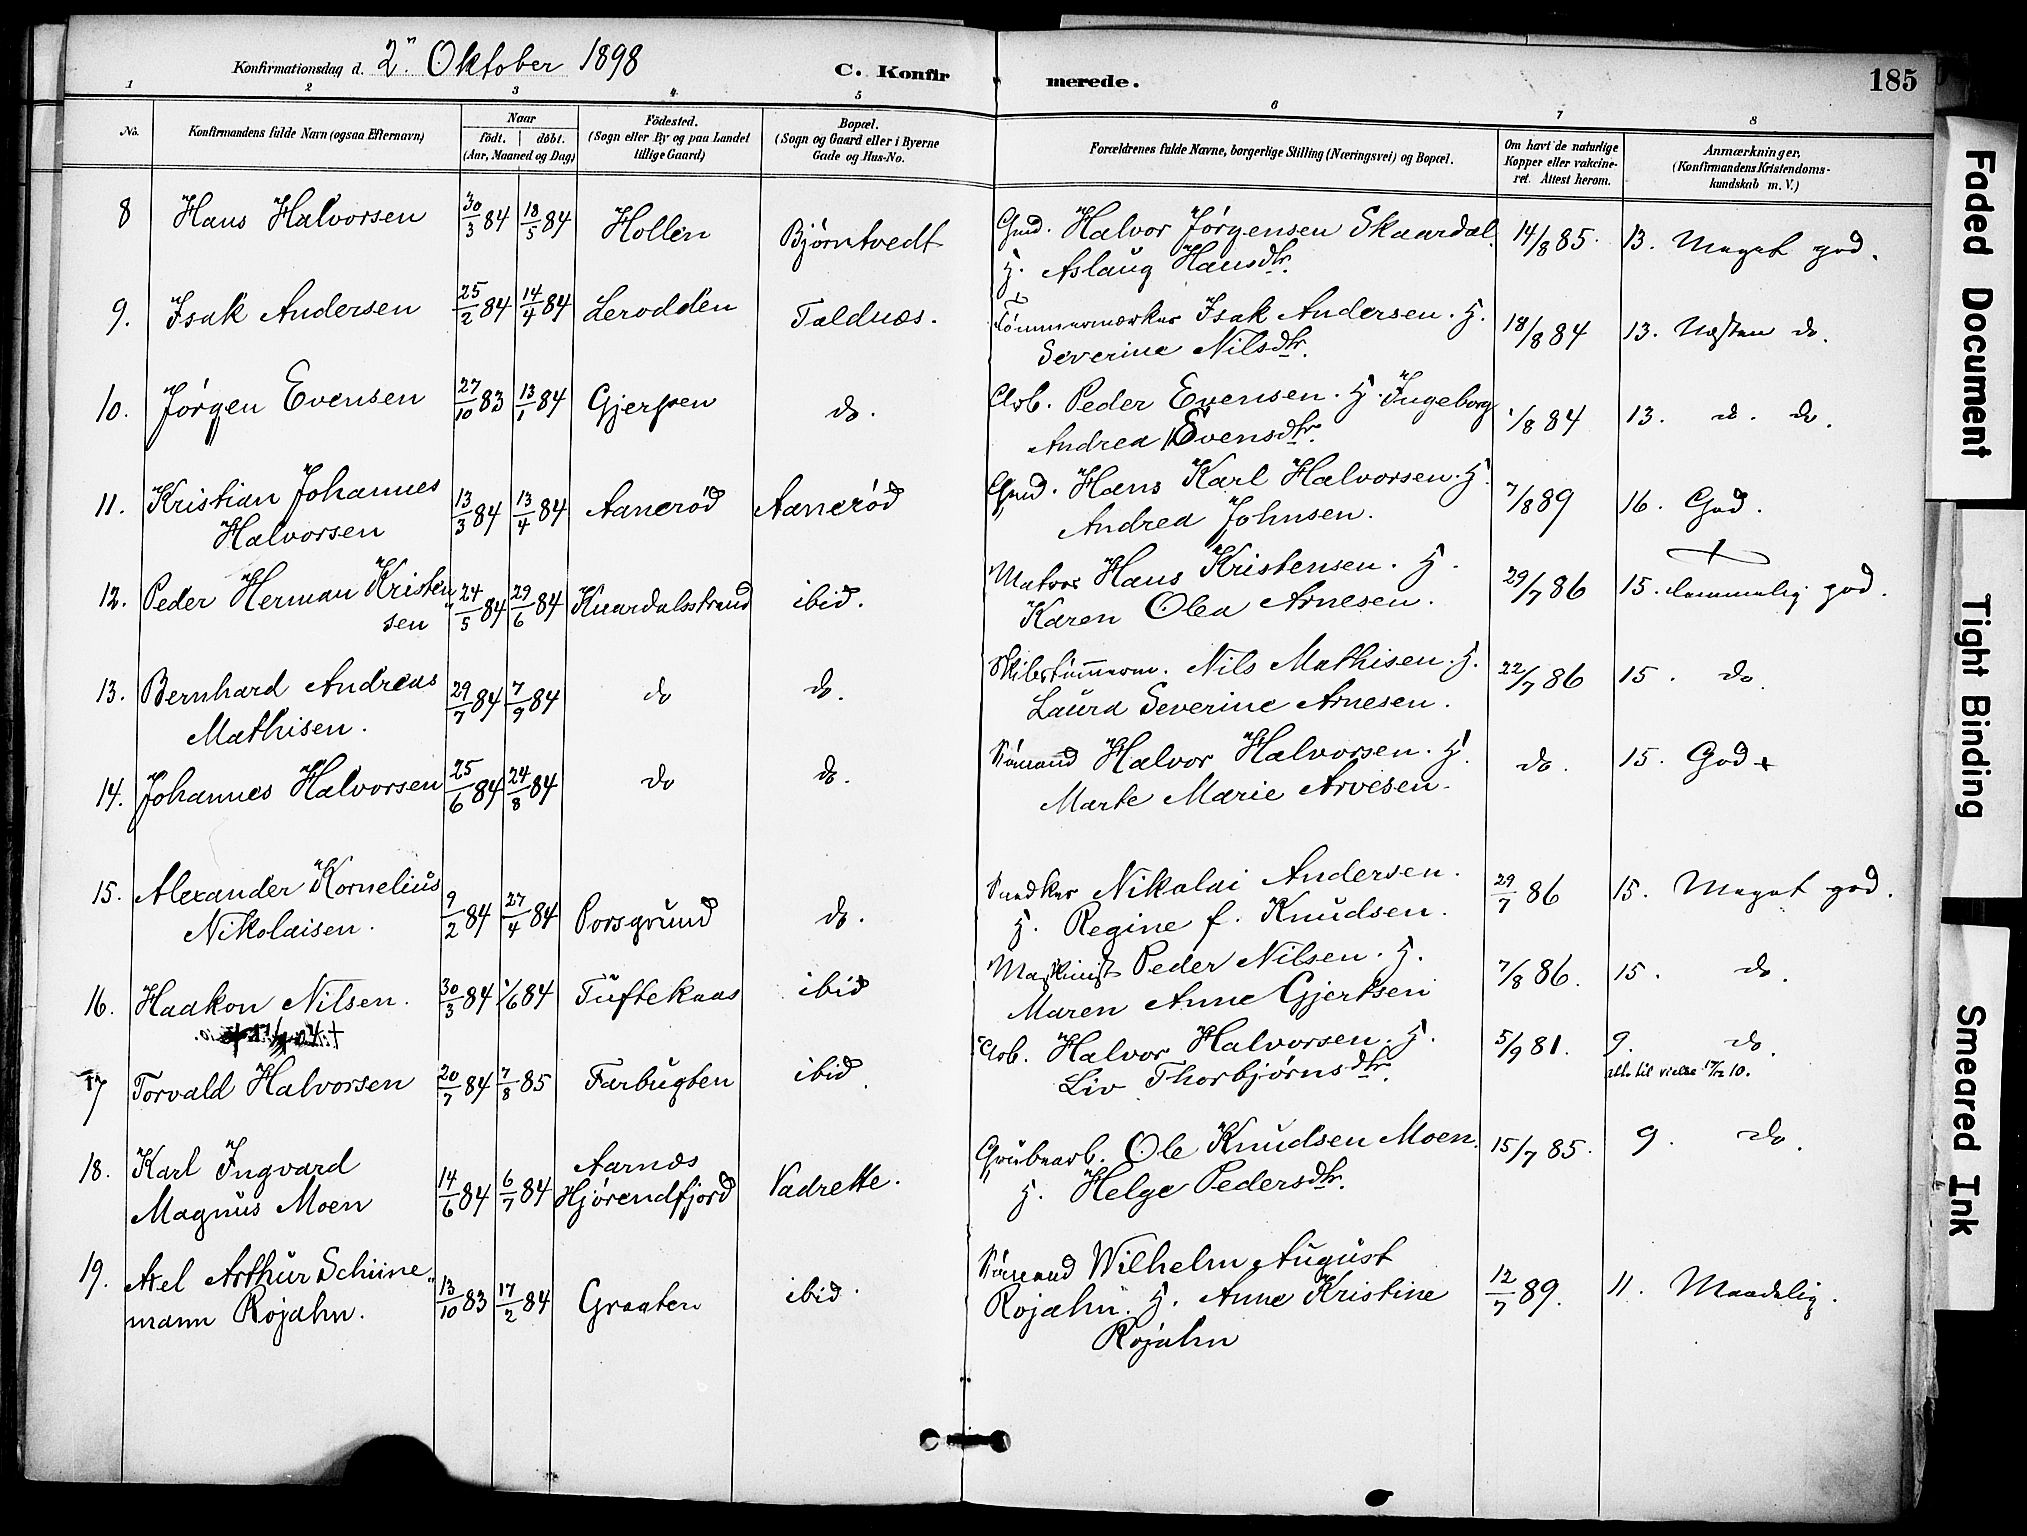 Konfirmationsdag d. 2' Oktober 1898 C. Konfirmerede. 185
1 2 3 4 5 6 7 8
No. Konfirmandens fulde Navn (ogsaa Efternavn) Naar født. døbt. (Aar, Maaned og Dag) Fødested. (Sogn eller By og paa Landet tillige Gaard) Bopæl. (Sogn og Gaard eller i Byerne Gade og Hus-No. Forældrenes fulde Navne, borgerlige Stilling (Næringsvei) og Bopæl. Om havt de naturlige Kopper eller vakcineret. Attest herom. Anmærkninger. (Konfirmandens Kristendomskundskab m. V.)
8 Hans Halvorsen 30/3 84 18/5 84 Hollen Bjørntvedt Gmd. Halvor Jørgensen Skaardal. 14/8 85. 13. Meget god.
H. Aslaug Hansdtr.
9. Isak Andersen 25/2 84 14/4 84 Lerodden Toldnæs. Tømmermærker Isak Andersen. H. 18/8 84 13. Næsten do.
Severine Nilsdtr.
10. Jørgen Evensen 27/10 83 13/1 84 Gjerpen do. Arb. Peder Evensen. H. Ingeborg 1/8 84 13. do. do.
Andrea Evensdtr.
11. Kristian Johannes 13/3 84 13/4 84 Aanerød Aanerød Gmd. Hans Karl Halvorsen. H. 7/8 89 16. God.
Halvorsen Andrea Johnsen.
12. Peder Herman Kristen 24/5 84 29/6 84 Knardalsstrand ibid. Matros Hans Kristensen. H. 29/7 86 15. temmelig god.
sen Karen Olea Arnesen.
13. Bernhard Andreas 29/7 84 7/9 84 do do. Skibstømmerm. Nils Mathisen. H. 22/7 86 15. do.
Mathisen. Laura Severine Arnesen.
14. Johannes Halvorsen 25/6 84 24/8 84 do do. Sømand Halvor Halvorsen. H. do. 15. God +
Marte Marie Arvesen.
15. Alexander Kornelius 9/2 84 27/4 84 Porsgrund do. Snedker Nikolai Andersen. 29/7 86 15. Meget god.
Nikolaisen. H. Regine f. Knudsen.
16. Haakon Nilsen. 30/3 84 1/6 84 Tuftekaas ibid Maskinist Peder Nilsen. H. 7/8 86. 15. do.
Maren Anne Gjertsen
17 Torvald Halvorsen 20/7 84 7/8 85 Farbugten ibid. Arb. Halvor Halvorsen. H. 5/9 81. 9. do.
Liv Thorbjørnsdtr. att. til vielse 17/12 10.
18. Karl Ingvard 14/6 84 6/7 84 Aarnæs Vadrette. Grubearb. Ole Knudsen Moen. 15/7 85. 9. do.
Magnus Moen Hjørendfjord H. Helge Pedersdtr.
19. Axel Arthur Schüne 13/10 83 17/2 84 Graaten ibid. Sømand Wilhelm August 12/7 89. 11. Maadelig.
mann Rojahn. Rojahn. H. Anne Kristine
Rojahn
Faded Document
Tight Binding
Smeared Ink